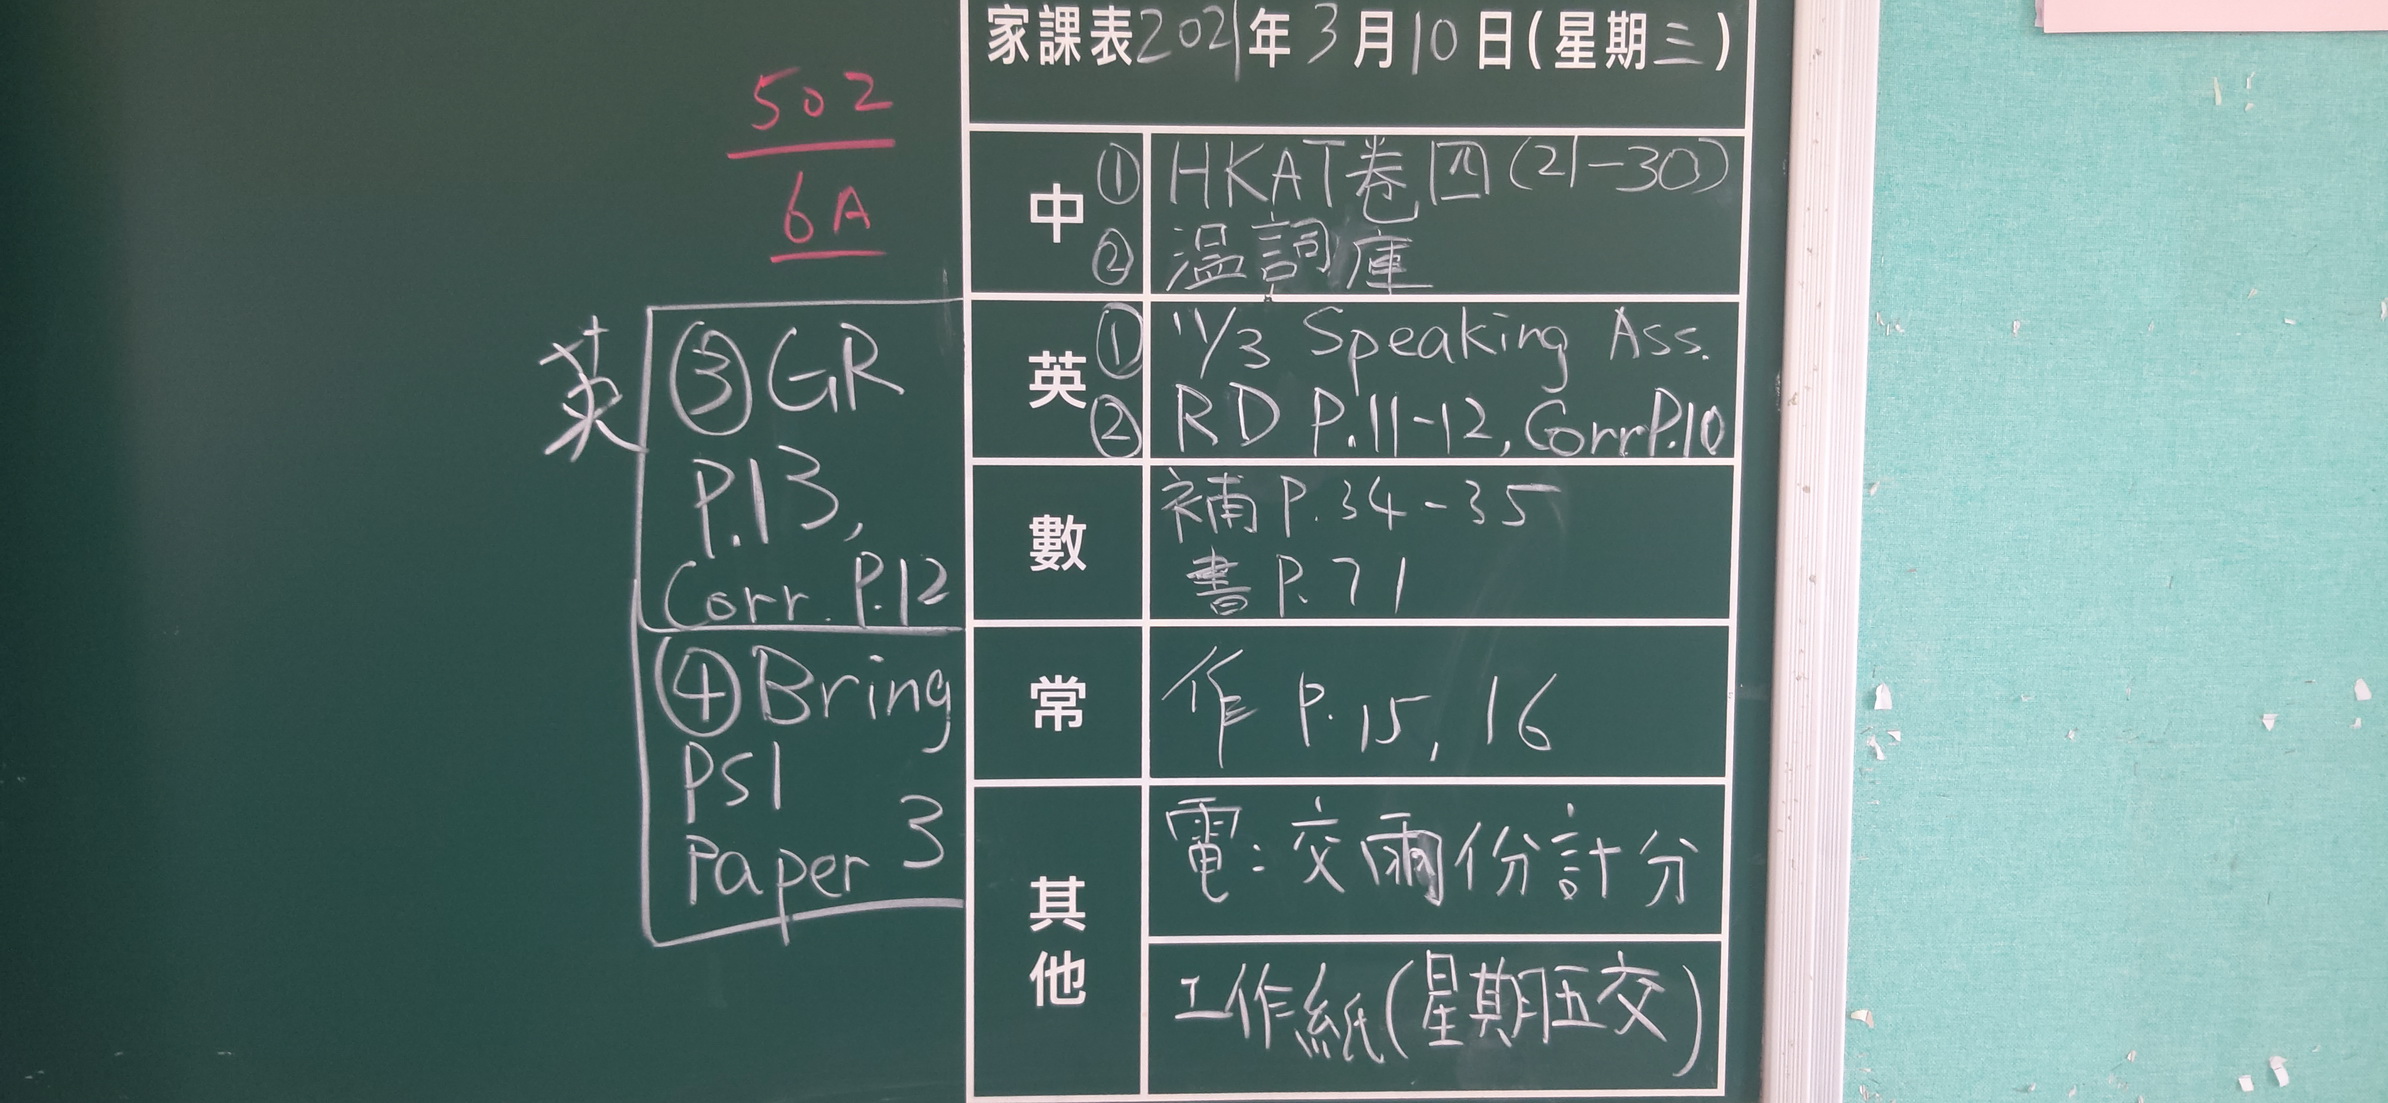 家課表2021年3月10日(星期三)
502
6A
中
① HKAT卷四(21-30)
② 温詞庫
英
① 11/3 Speaking Ass.
② RD P.11-12, Corr P.10
英
③ GR
P.13,
Corr. P.12
④ Bring
PS1
Paper 3
數
補 P.34-35
書 P.71
常
作 P.15, 16
其他
電:交兩份計分
工作紙(星期五交)